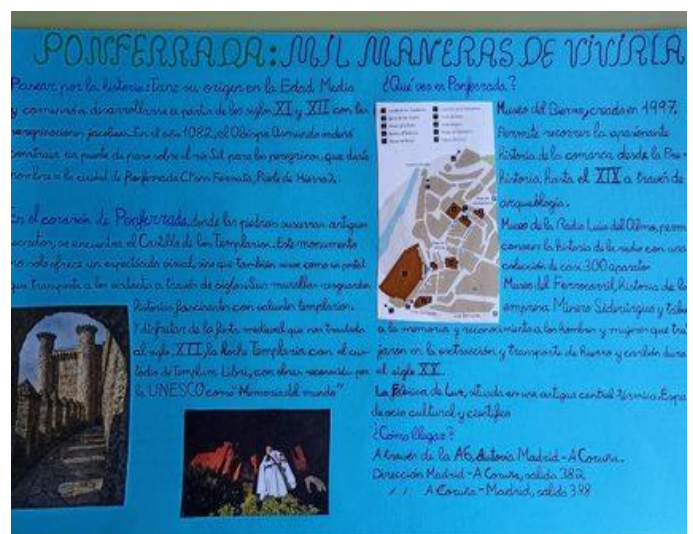 PONFERRADA: MIL MANERAS DE VIVIRLA
Pasear por la historia: Tiene su origen en la Edad Media
y comienza a desarrollarse a partir de los siglos XI y XII con las
peregrinaciones jacobeas. En el año 1082, el Obispo Osmundo ordenó
construir un puente de paso sobre el río Sil para los peregrinos, que daría
nombre a la ciudad de Ponferrada (Pons Ferrata, Puente de Hierro).
En el corazón de Ponferrada, donde las piedras susurran antiguos
secretos, se encuentra el Castillo de los Templarios. Este monumento
no solo ofrece un espectáculo visual, sino que también sirve como un portal
que transporta a los visitantes a través de siglos. Sus murallas resguardan
historias fascinantes con valientes templarios.
Y disfrutar de la fiesta medieval que nos traslada
al siglo XII, la Noche Templaria con el cus-
todio de Templum Libri, con obras reconocidas por
la UNESCO como "Memoria del mundo"
¿Qué ver en Ponferrada?
Museo del Bierzo, creado en 1997.
Permite recorrer la apasionante
historia de la comarca desde la Pre-
historia hasta el XIX a través de
arqueología.
Museo de la Radio Luis del Olmo,
conocer la historia de la radio con una
colección de casi 300 aparatos
Museo del Ferrocarril, historia de la
empresa Minero Siderúrgica y
a la memoria y reconocimiento a los hombres y mujeres que tra
jaron en la extracción y transporte de hierro y carbón
el siglo XX.
La Fábrica de Luz, situada en una antigua central térmica.
de ocio cultural y científico
¿Cómo llegar?
A través de la A6, Autovía Madrid - A Coruña.
Dirección Madrid - A Coruña, salida 382
" A Coruña - Madrid, salida 388